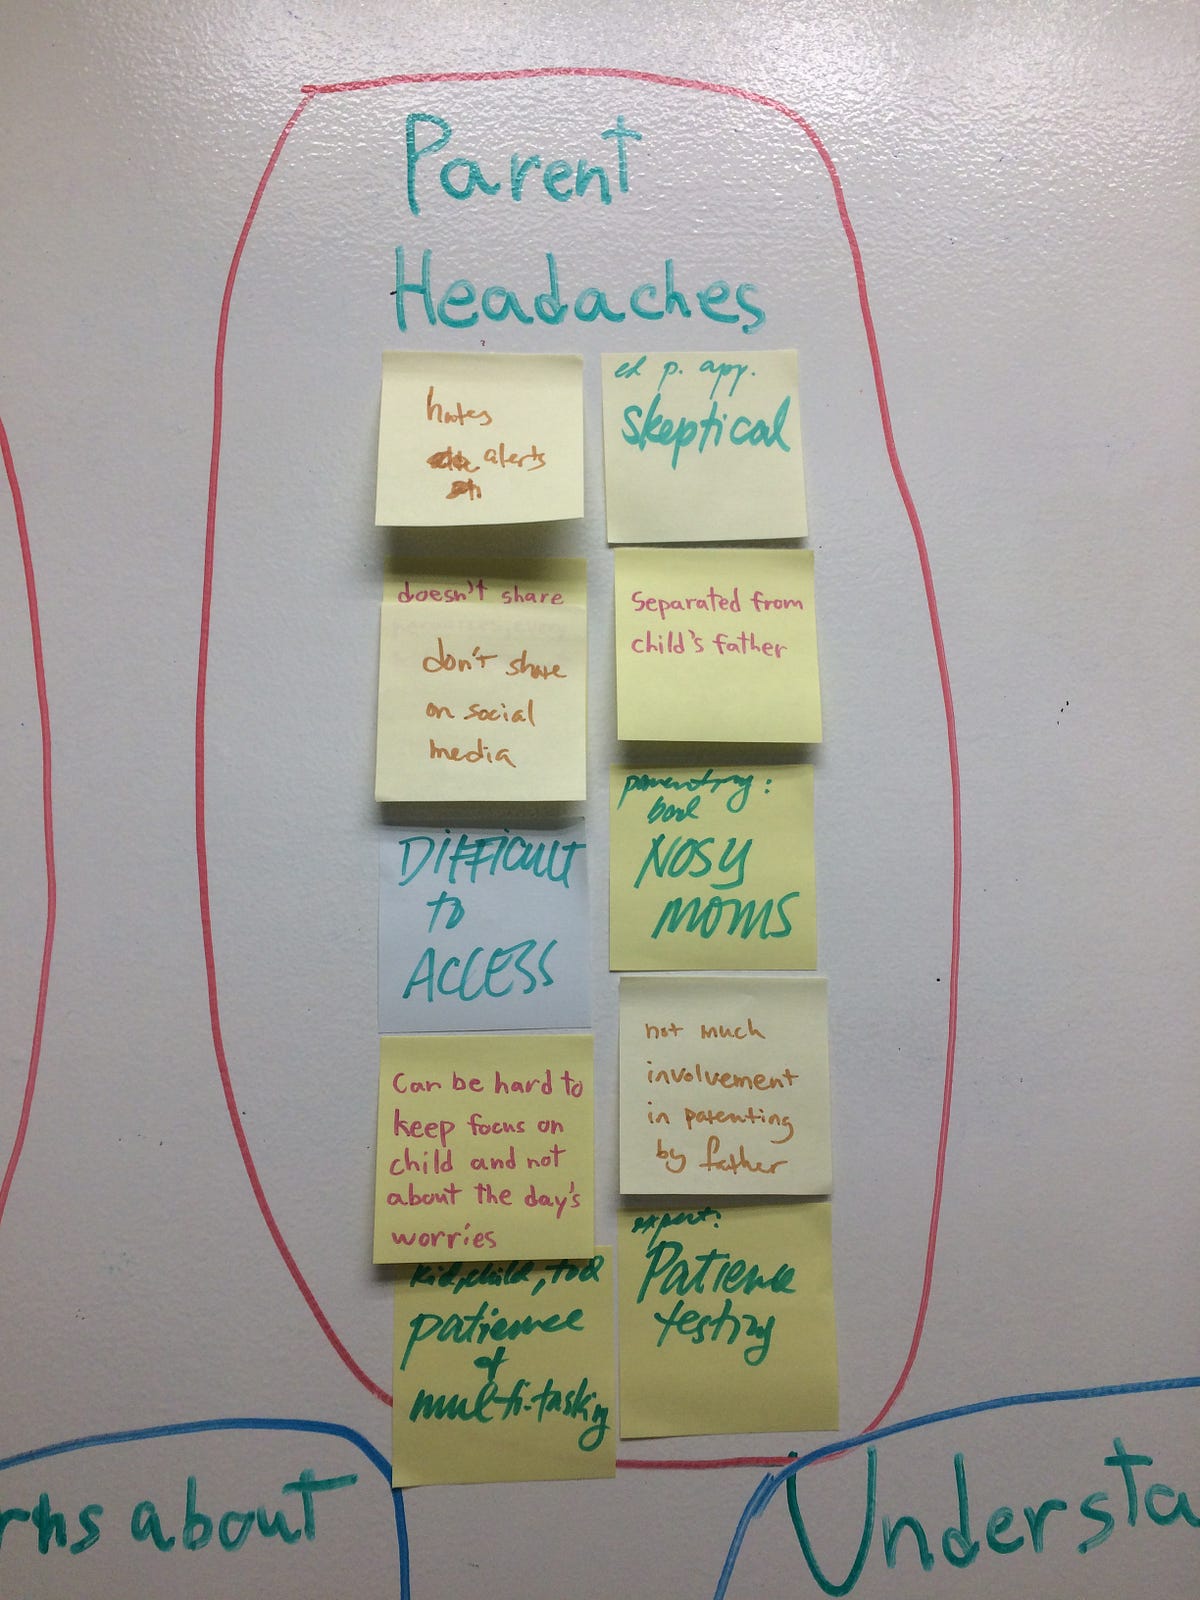 Parent
Headaches
hates
alerts
doesn't share
don't share
on social
media
DIFFICULT
to
ACCESS
Can be hard to
keep focus on
child and not
about the day's
worries
kid, child,
patience
&
multi-tasking
ed p. app.
skeptical
Separated from
child's father
parenting:
NOSY
MOMS
not much
involvement
in parenting
by father
expert:
Patience
testing
rns about
Understa